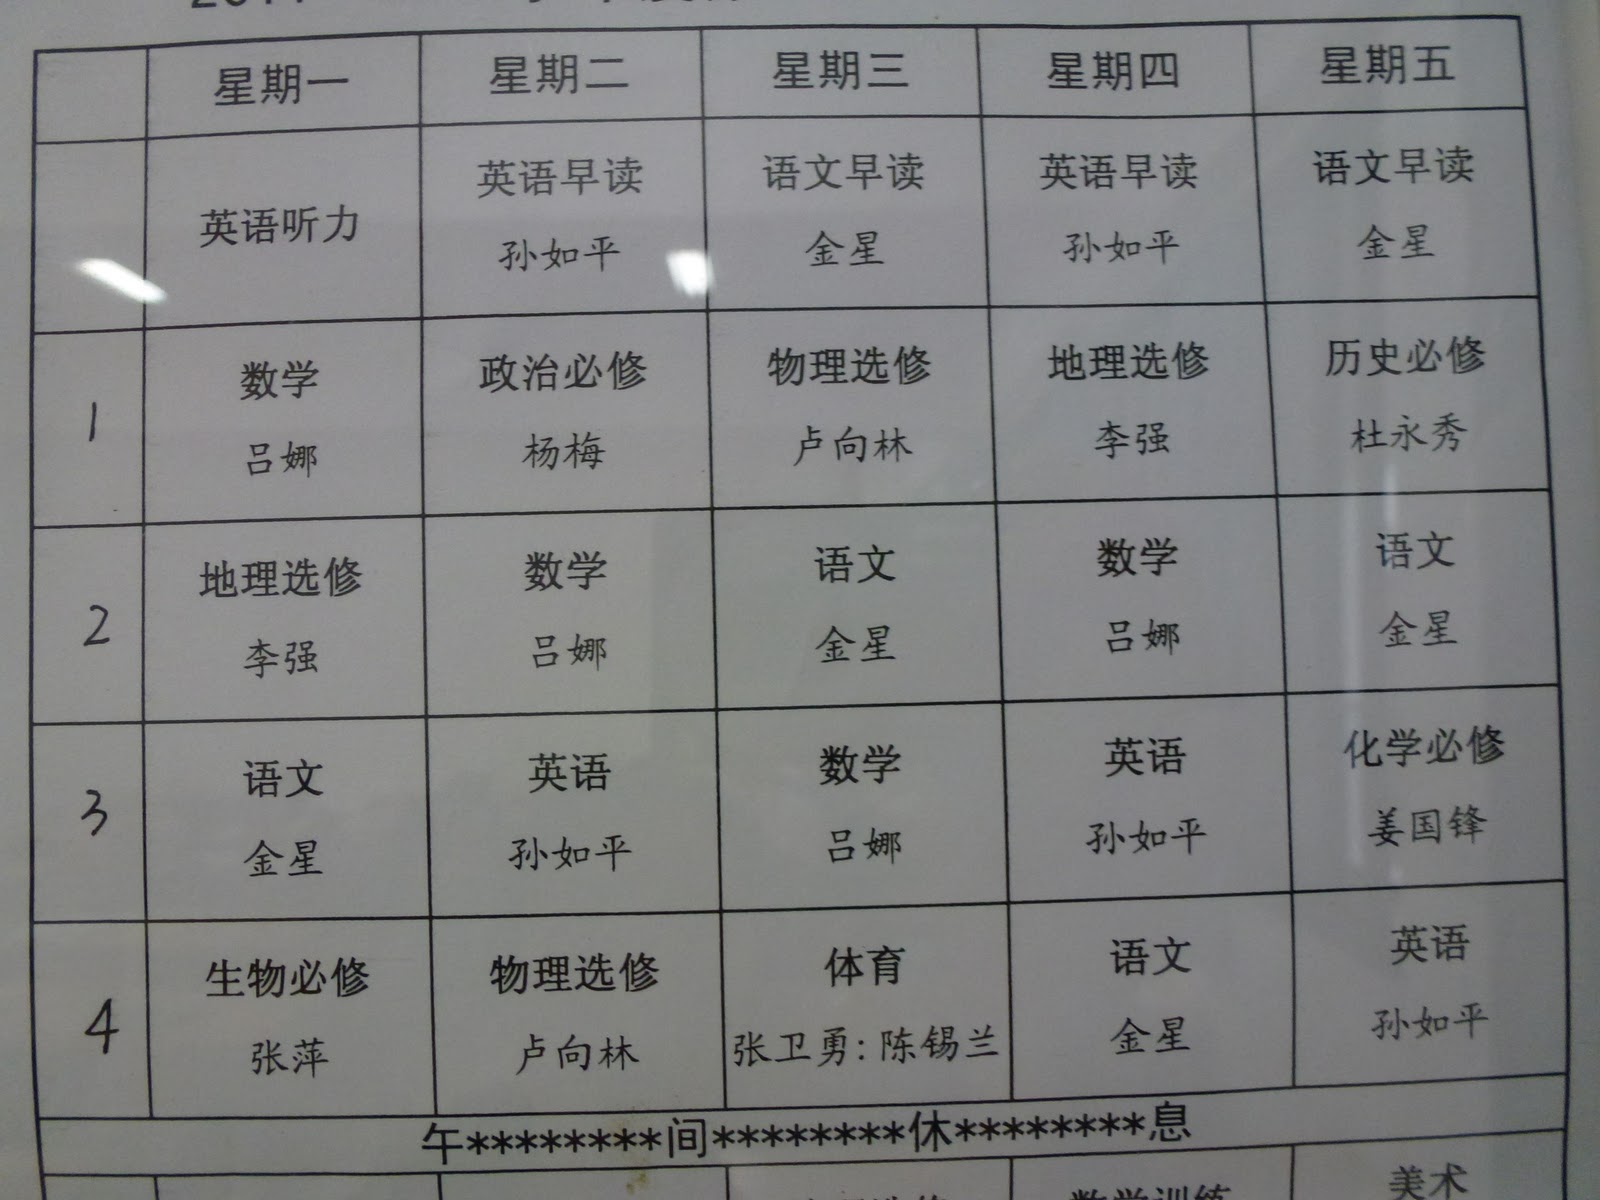 星期一 星期二 星期三 星期四 星期五
英语听力 英语早读 语文早读 英语早读 语文早读
孙如平 金星 孙如平 金星
1 数学 政治必修 物理选修 地理选修 历史必修
吕娜 杨梅 卢向林 李强 杜永秀
2 地理选修 数学 语文 数学 语文
李强 吕娜 金星 吕娜 金星
3 语文 英语 数学 英语 化学必修
金星 孙如平 吕娜 孙如平 姜国锋
4 生物必修 物理选修 体育 语文 英语
张萍 卢向林 张卫勇:陈锡兰 金星 孙如平
午********间********休********息
数学训练 美术